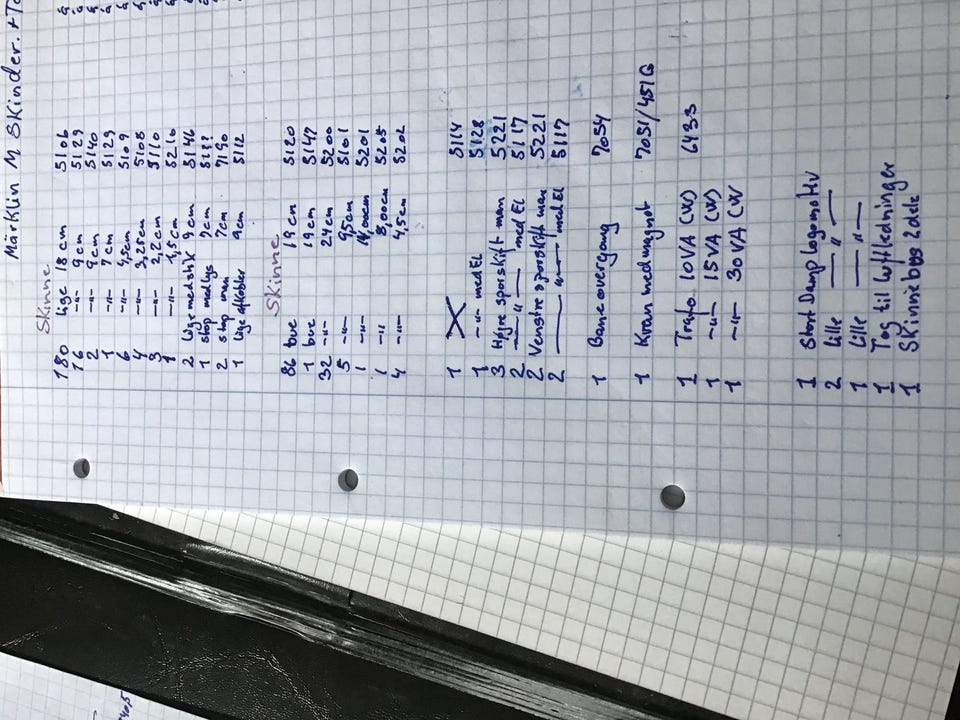 Märklin M Skinder. + To
Skinne
180 lige 18 cm 5106
16 -"- 9 cm 5129
2 -"- 9 cm 5140
1 -"- 7 cm 5129
6 -"- 4,5cm 5109
4 -"- 3,25cm 5108
3 -"- 2,2 cm 5110
1 -"- 1,5 cm 5210
2 lige med stik 9 cm 5146
1 stop med lys 7cm
2 stop man 7cm 7190
1 lige afkobler 9cm 5112
Skinne
86 bue 19 cm 5120
1 bue 19cm 5147
32 -"- 24 cm 5200
5 -"- 9,5cm 5101
1 -"- 5201
1 -"- 8,00cm 5205
4 -"- 4,5cm 5202
1 X 5114
1 -"- med El 5128
3 Højre sporskift man 5221
2 -"- med El 5117
2 Venstre sporskift man 5221
2 -"- med El 5117
1 Baneovergang 7054
1 Kran med magnet 7051/451G
1 Trafo 10VA (W) 6433
1 -"- 15VA (W)
1 -"- 30VA (W
1 Stort Damplogomotiv
2 Lille -"-
1 Lille -"-
1 Tog til luftledninger
1 Skinnebus 2 dele